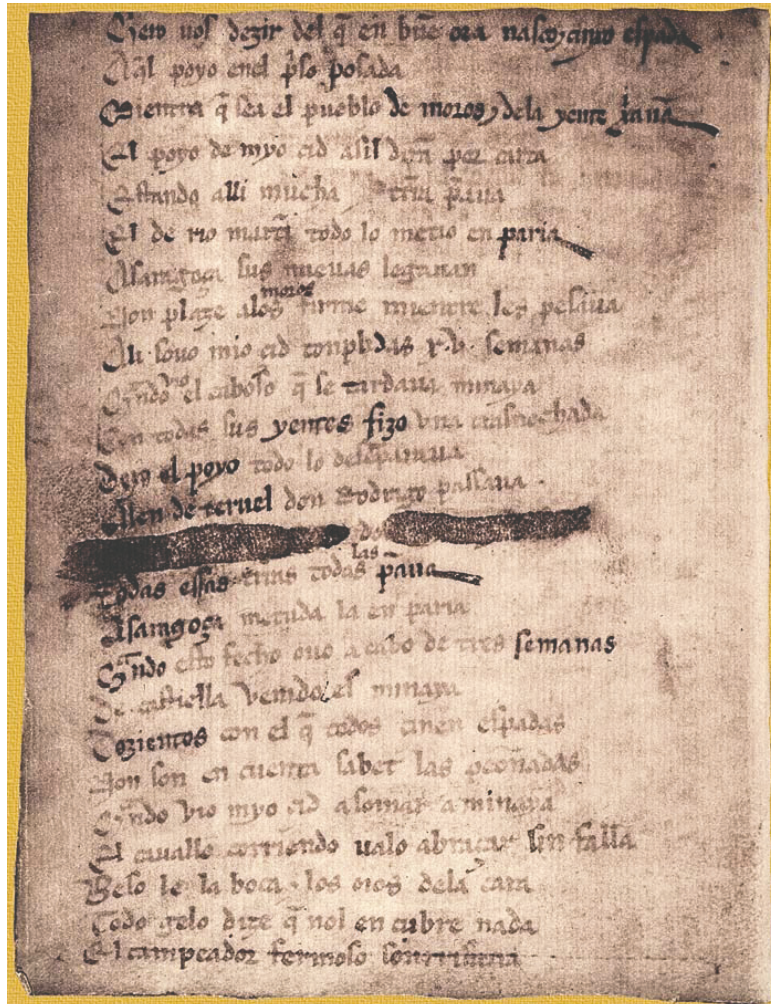 Quiero uos dezir del q̃ en buẽ ora nasco ⁊ çinxo espada
Aq̃l poyo enel p̃so posada
Mientra q̃ sea el pueblo de moros ⁊ dela yente x̃ana
El poyo de myo çid asil dirã por carta
Estando alli mucha tr̃ra p̃aua
El de rio martĩ todo lo metio en paria
Asaragoça sus nueuas legauan
Non plaze alos moros firme mientre les pesaua
Ali souo mio çid conplidas xv. semanas
Qñdo vio el caboso q̃ se tardaua minaya
Con todas sus yentes fizo vna trasnochada
Dexo el poyo todo lo desenparaua
Allen de teruel don Rodrigo passaua
do
Todas essas tr̃ras todas las p̃aua
Asaragoça metuda la en paria
Qñdo esto fecho ouo a cabo de tres semanas
De castiella venido es minaya
Dozientos con el q̃ todos çinen espadas
Non son en cuenta sabet las peonadas
Qñdo vio myo çid asomar a minaya
El cauallo corriendo ualo abraçar sin falla
Beso le la boca ⁊ los oios dela cara
Todo gelo dize q̃ nol en cubre nada
El campeador fermoso sonrrisaua